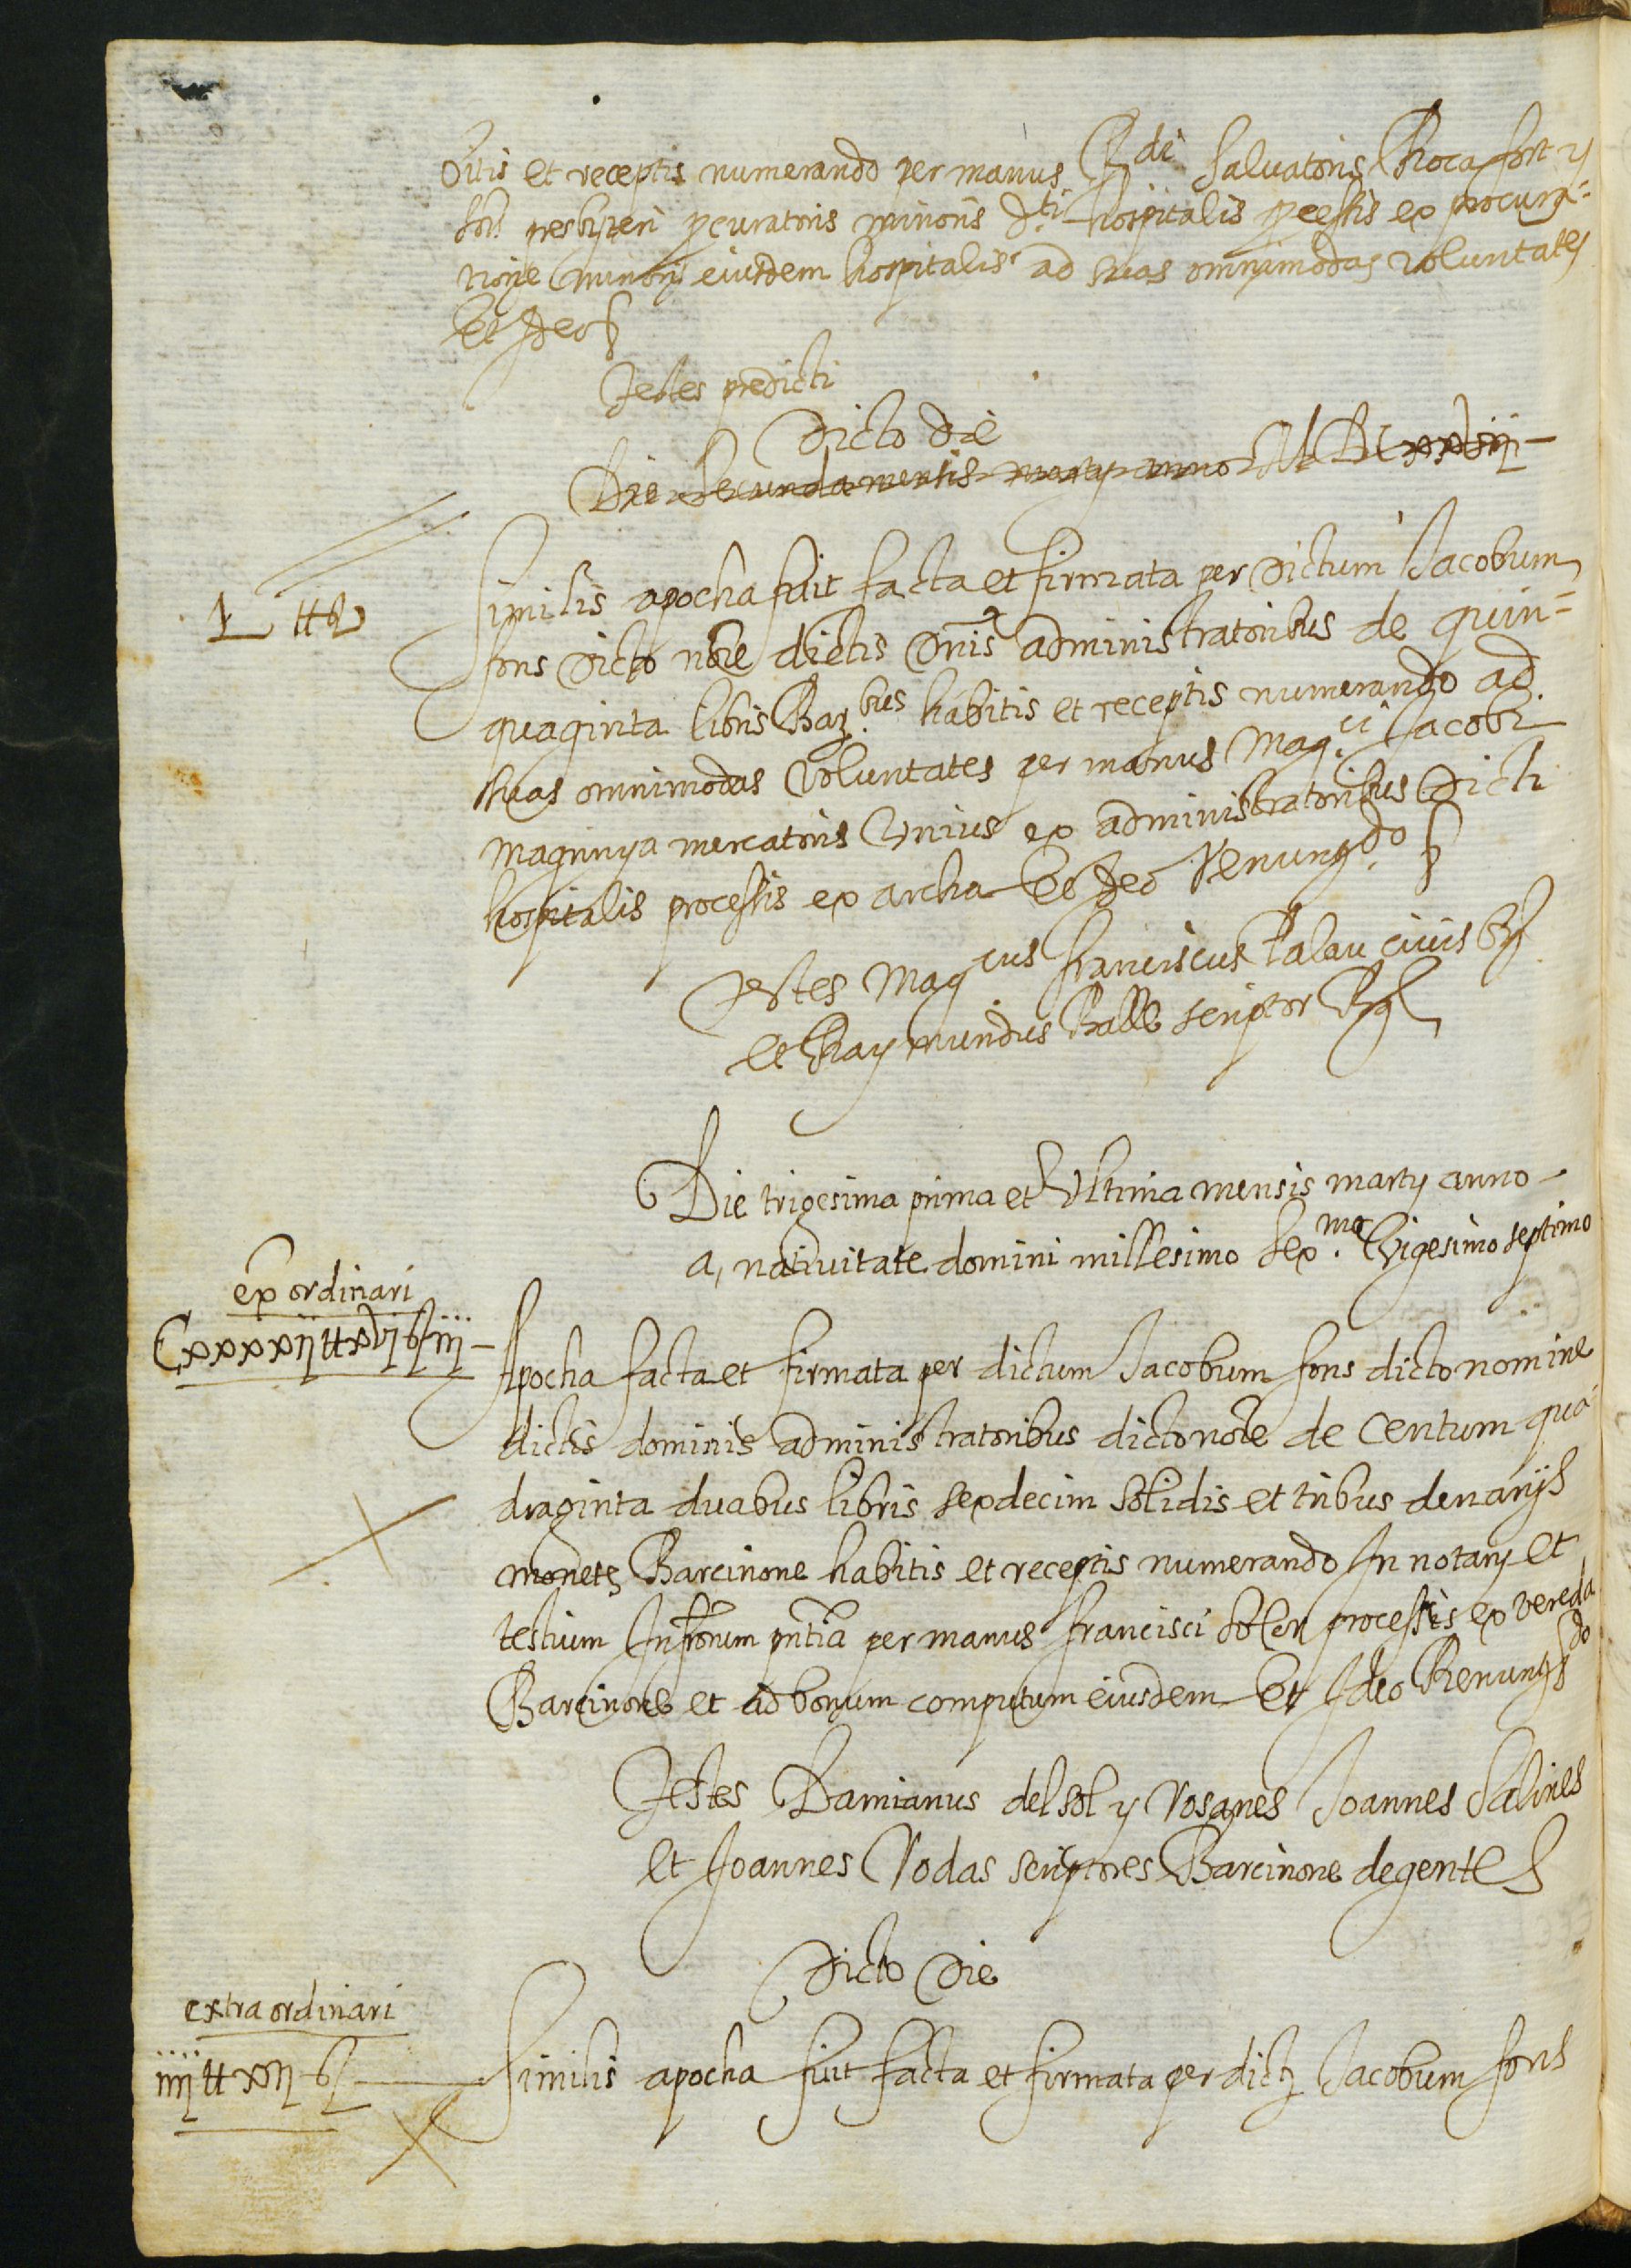 bitis et receptis numerando per manus R.di Salvatoris Rocafort y
presbyteri pcuratoris minoris d.ti hospitalis pcessis ex procura=
tione minori eiusdem hospitalis ad suas omnimodas voluntates
et Ideo
Testes predicti
Dicto die
Die secunda mensis martij anno M DC xxvij
L ₶
Similis apocha fuit facta et firmata per dictum Jacobum
fons dicto noīe dictis dnis administratoribus de quin=
quaginta libris Bar.bus habitis et receptis numerando ad
suas omnimodas voluntates per manus Mag.ci Jacobi
Magrinya mercatoris Unius ex administratoribus dicti
hospitalis processis ex archa Et Ideo Renung.do
Testes Mag.cus Franciscus Palau civis
et Raymundus Ball scriptor
Die trigesima prima et Ultima mensis martij anno
a, nativitate domini millesimo sex.mo Vigesimo septimo
ex ordinari
Cxxxxij ₶ xvj ß iij
Apocha facta et firmata per dictum Jacobum fons dicto nomine
dictis dominis administratoribus dicto noīe de Centum qua
draginta duabus libris sexdecim solidis et tribus denarijs
monete Barcinone habitis et receptis numerando In notarij et
testium Infrorum pntia per manus francisci soler processis ex vereda
Barcinone et ad bonum computum eiusdem Et Ideo Renung.do
Testes Damianus del sol y Vosanes Joannes Salines
et Joannes Vodas scriptores Barcinone degentes
Dicto Die
extraordinari
iiij ₶ xij ß
Similis apocha fuit facta et firmata per dictz Jacobum fons